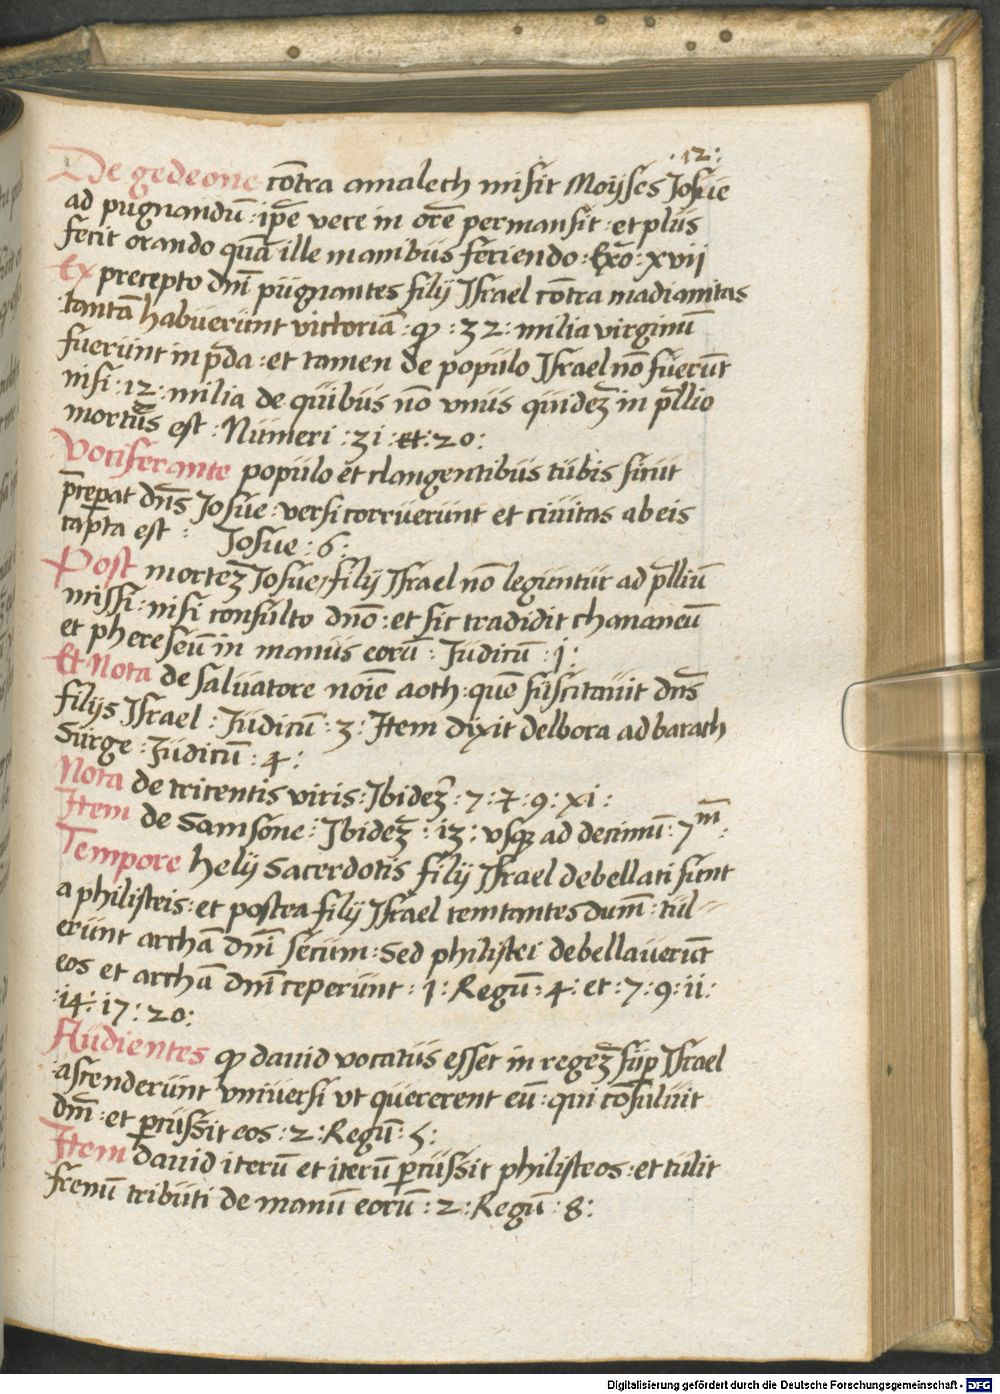 .12:
De gedeone cōtra amalech misit Moÿses Josue
ad pugnandū : ip̄e vere in orē permansit : et plus
fecit orando quā ille manibus feriendo : Exō : xvii
Ex precepto dn̄i pugnantes filij Israel cōtra madianitas
tantā habuerunt victoriā : ꝙ : 32 : milia virginū
fuerunt in p̄da : et tamen de populo Israel nō fuerūt
nisi : 12 : milia de quibus nō vnus quidez̄ in p̄llio
mortūs est : Numeri : 31 : et : 20 :
Vociferante populo et clangentibus tubis sicut
p̄cepat dn̄s Josue : versi corruerunt et ciuitas ab eis
capta est : Josue : 6 :
Post mortez̄ Josue filij Israel nō leguntur ad p̄lliū
missi : nisi consulto dn̄o : et sic tradidit chananeū
et phereseū in manus eorū : Judicū : 1 :
Et Nota de saluatore noīe aoth : quē suscitauit dn̄s
filijs Israel : Judicū : 3 : Item dixit delbora ad barach
Surge : Judicū : 4 :
Nota de tricentis viris : Ibidez̄ : 7 : et : 9 : xi :
Item de Samsone : Ibidez̄ : 13 : vsqz ad decimū : 7m̄ :
Tempore helij Sacerdotis filij Israel debellati sunt
a philisteis : et postea filij Israel temtantes dum̄ : tul=
erunt archā dn̄i secum : Sed philistei debellauerūt
eos et archā dn̄i ceperunt : 1 : Regū : 4 : et : 7 : 9 : ii :
: 14 : 17 : 20 :
Audientes ꝙ dauid vocatus esset in regez̄ sup̱ Israel
ascenderunt vniuersi vt quererent eū : qui cōsuluit
dn̄m : et ꝑcussit eos : 2 : Regū : 5 :
Item dauid iterū et iterū ꝑcussit philisteos : et tulit
frenū tributi de manū eorū : 2 : Regū : 8 :
Digitalisierung gefördert durch die Deutsche Forschungsgemeinschaft - DFG